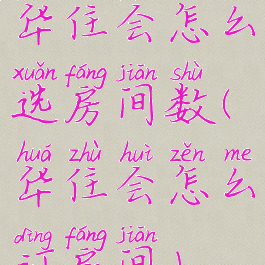 华住会怎么
xuǎn fáng jiān shù
选房间数(
huá zhù huì zěn me
华住会怎么
dìng fáng jiān
订房间)